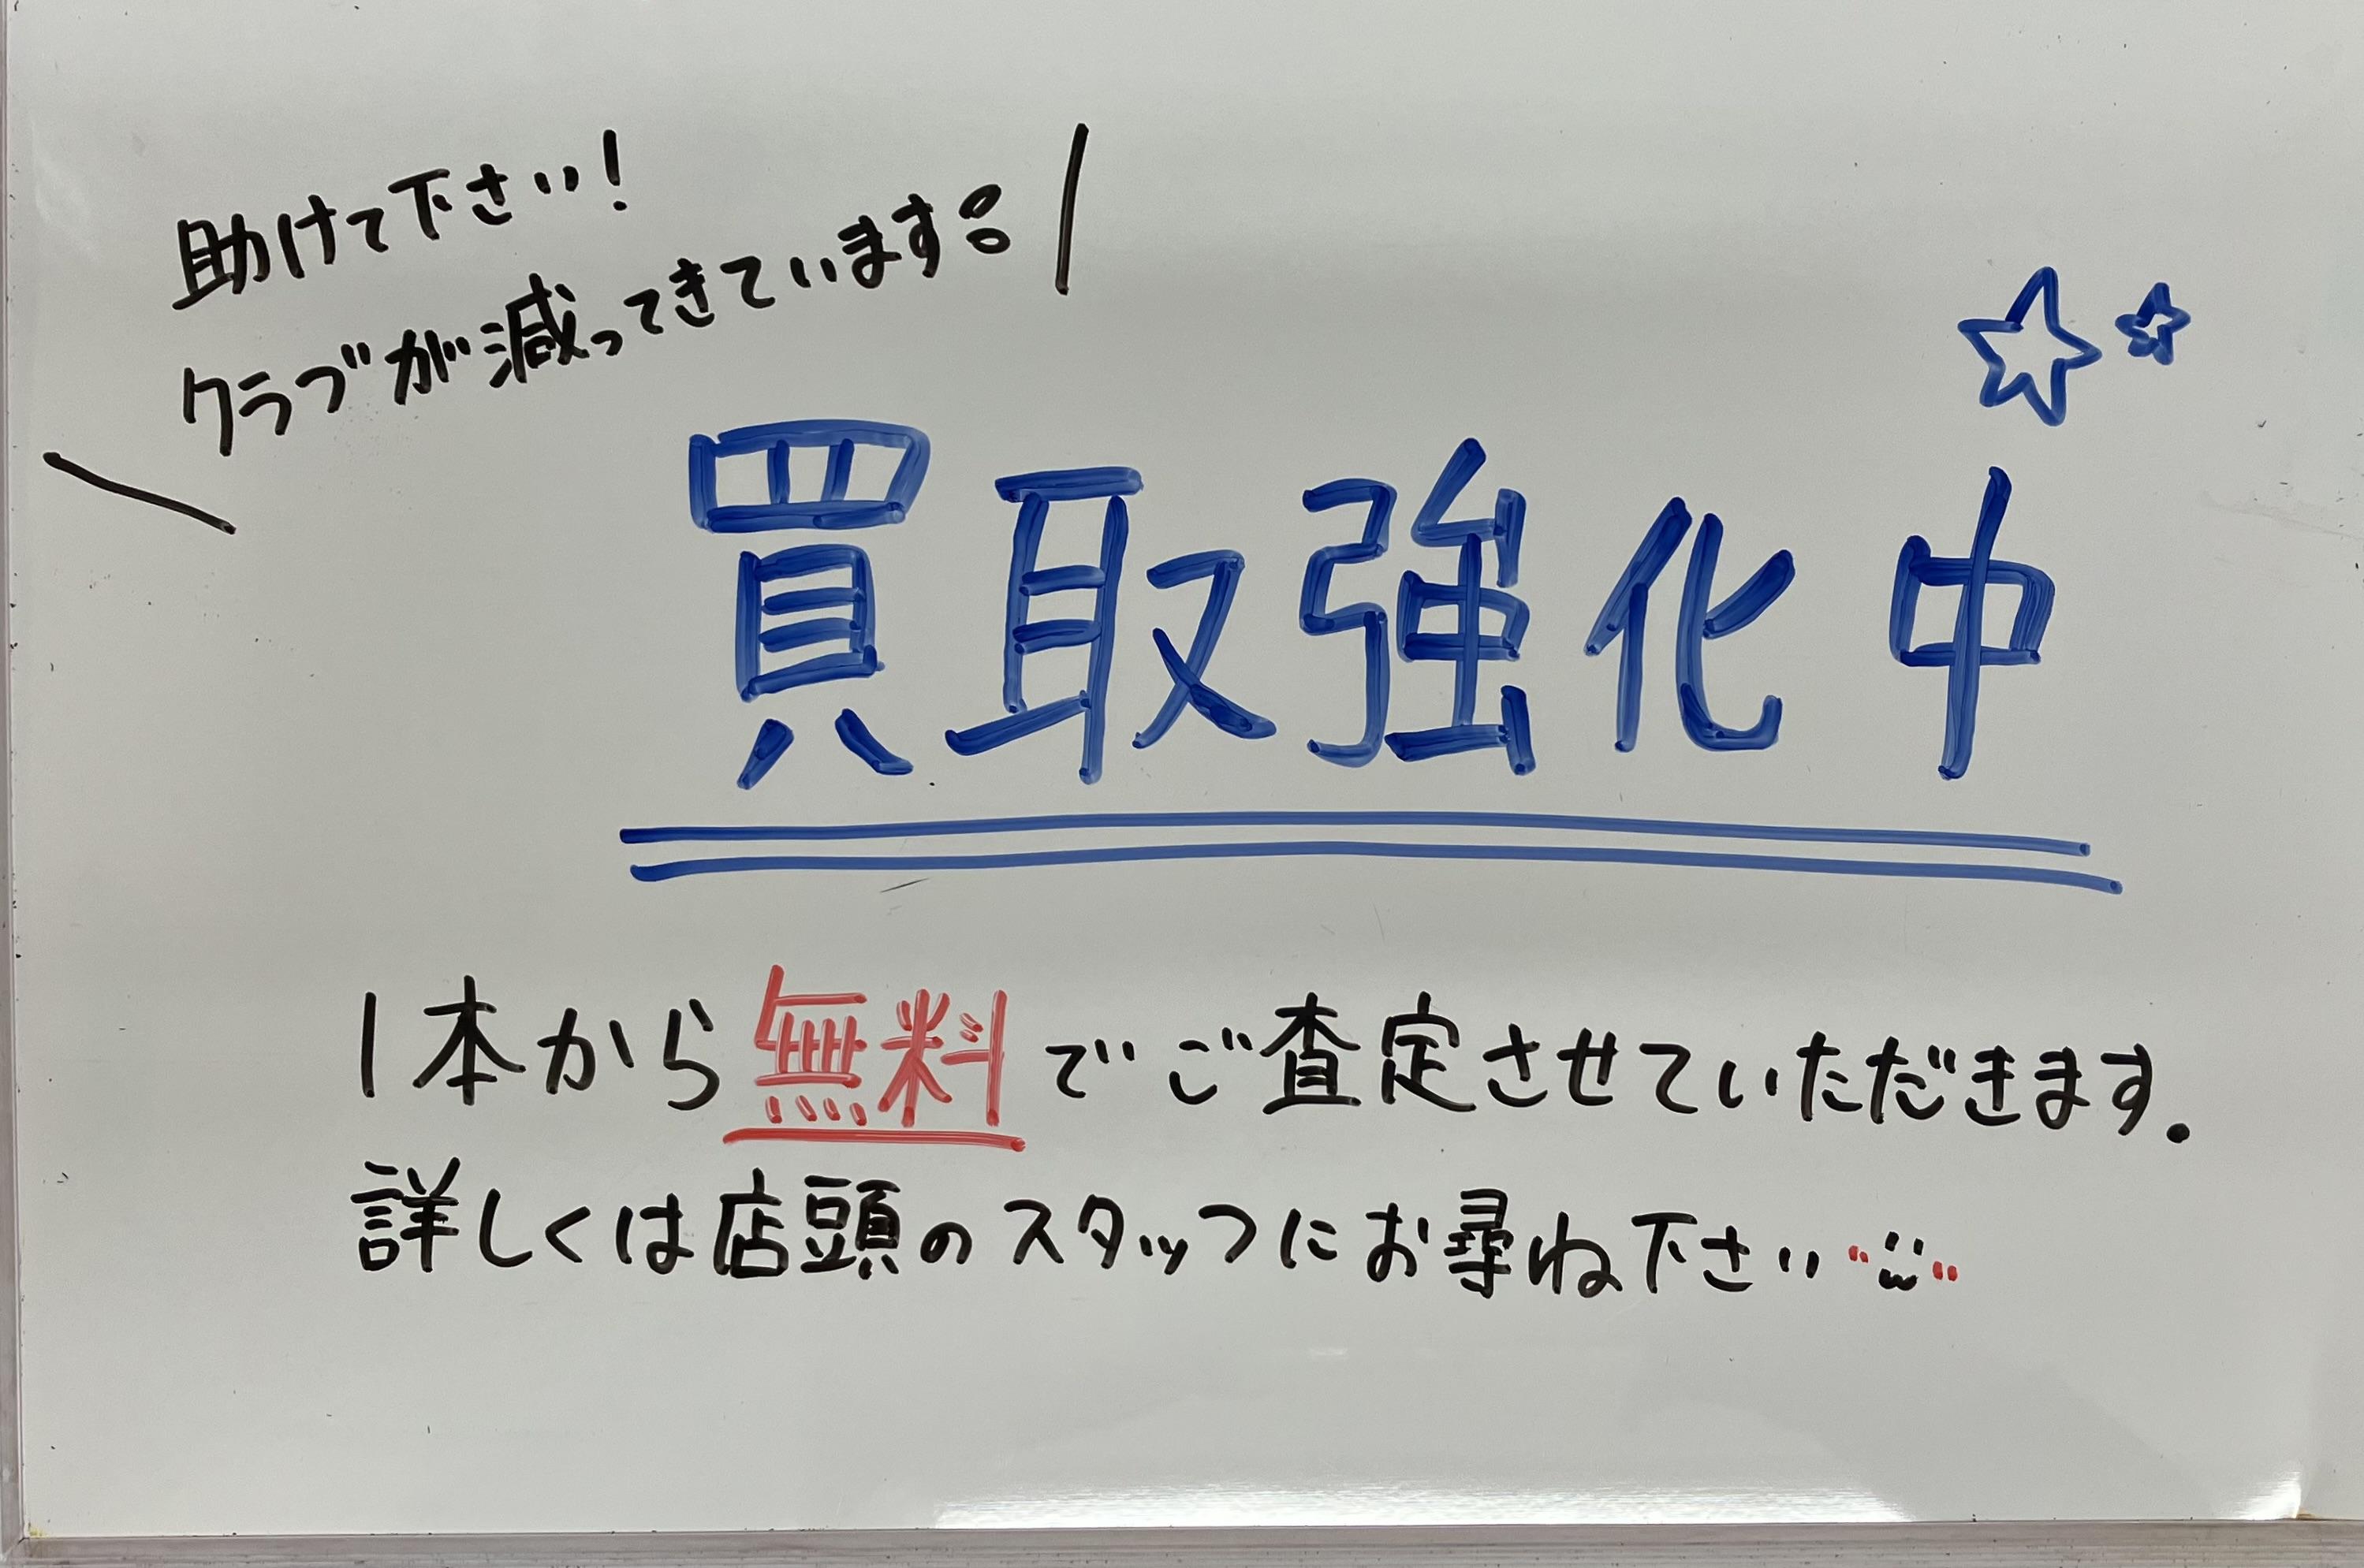 助けて下さい！
クラブが減ってきています
買取強化中
1本から無料でご査定させていただきます.
詳しくは店頭のスタッフにお尋ね下さい